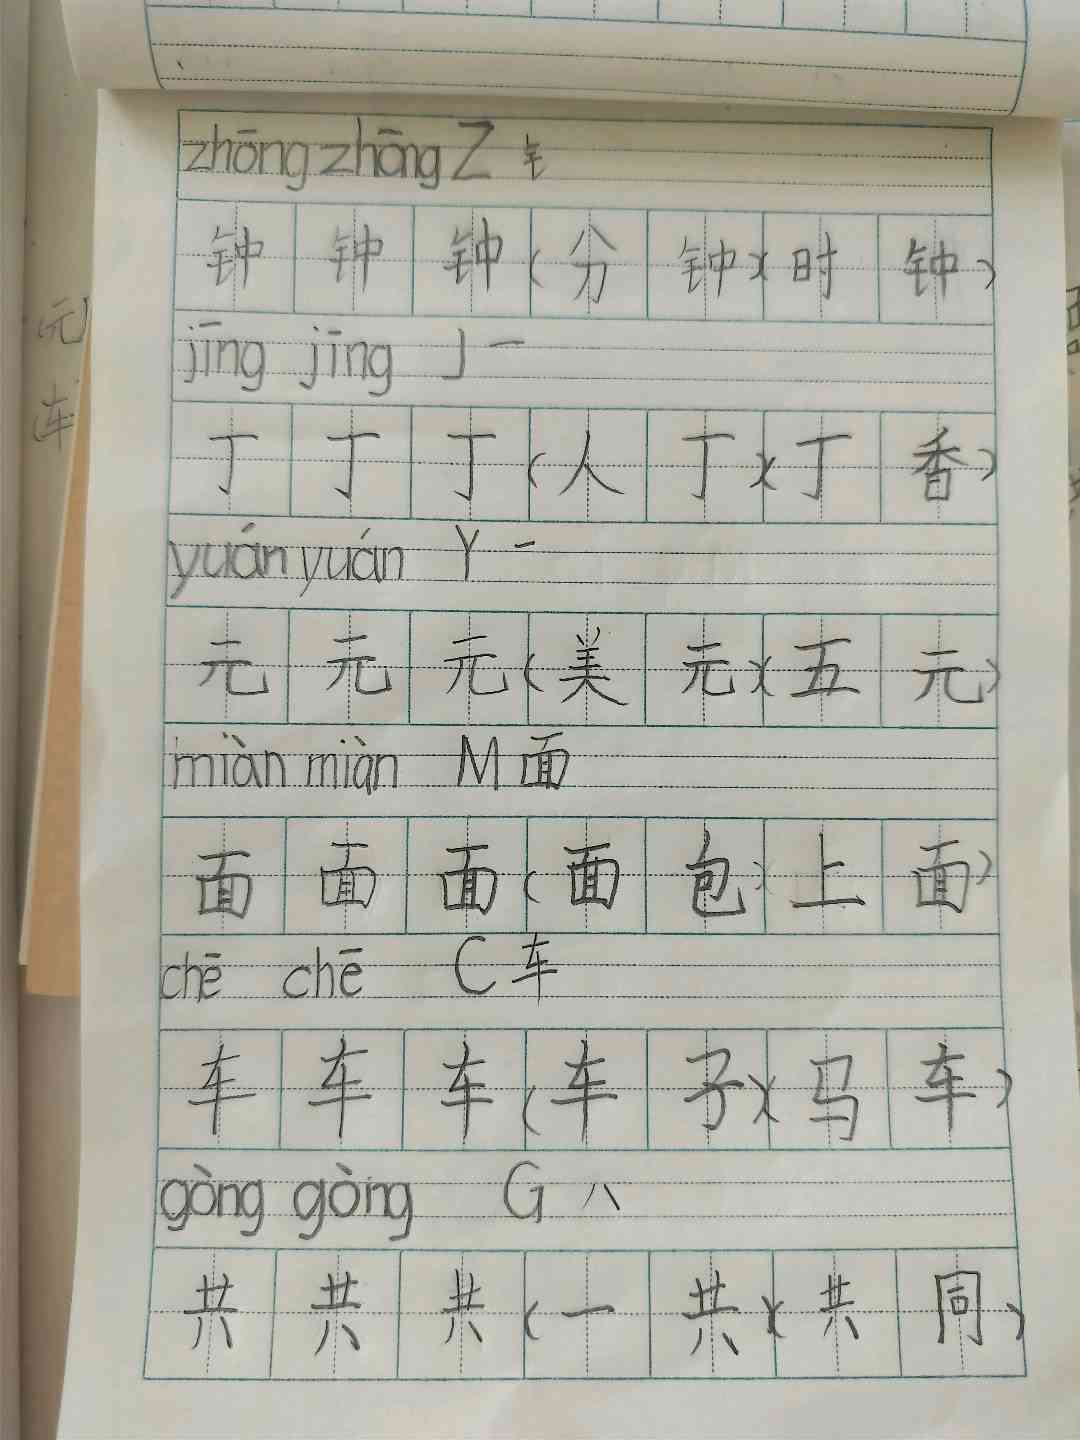 zhōng zhōng Z 钅
钟 钟 钟 (分 钟)(时 钟)
jīng jīng J 一
丁 丁 丁 (人 丁)(丁 香)
yuán yuán Y 一
元 元 元 (美 元)(五 元)
miàn miàn M 面
面 面 面 (面 包)(上 面)
chē chē C 车
车 车 车 (车 子)(马 车)
gòng gòng G 八
共 共 共 (一 共)(共 同)
元
车